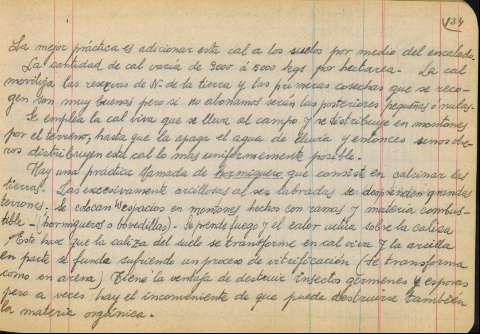 134
La mejor práctica es adicionar esta cal a los suelos por medio del encalado.
La cantidad de cal varía de 3000 á 5000 kgs por hectarea. La cal
moviliza las reservas de N. de la tierra y las primeras cosechas que se reco-
gen son muy buenas pero si no abonamos serán las posteriores pequeñas ó nulas.
Se emplea la cal viva que se lleva al campo y se distribuye en montones
por el terreno, hasta que la apaga el agua de lluvia y entonces unos obre-
ros distribuyen esta cal lo mas uniformemente posible.
Hay una práctica llamada de hormiguero que consiste en calcinar las
tierras. Las excesivamente arcillosas al ser labradas se desprenden grandes
terrones. Se colocan espacios en montones hechos con ramas y materia combus-
tible - (hormigueros o bovedillas). Se prende fuego y el calor actúa sobre la caliza
Este hace que la caliza del suelo se transforme en cal viva y la arcilla
en parte se funda sufriendo un proceso de vitrificación (se transforma
como en arena) Tiene la ventaja de destruir insectos gérmenes y esporas
pero a veces hay el inconveniente de que puede destruirse también
la materia orgánica.